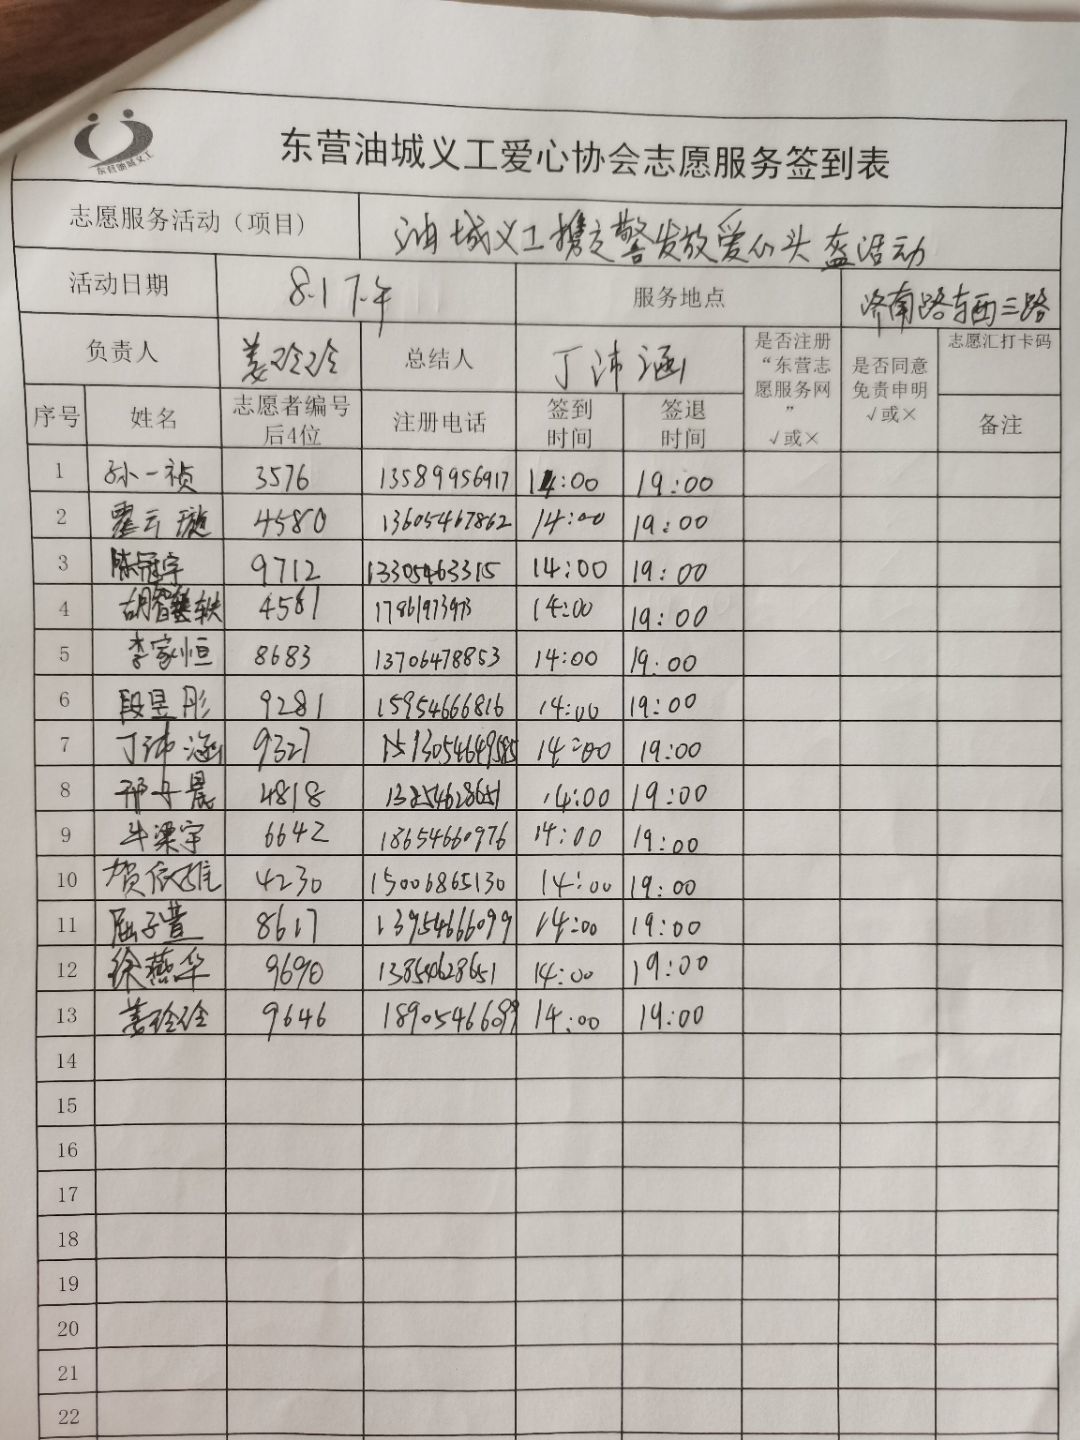 东营油城义工
东营油城义工爱心协会志愿服务签到表
志愿服务活动（项目） 油城义工携交警发放爱心头盔活动
活动日期 8.1下午 服务地点 济南路与西三路
负责人 姜玲玲 总结人 丁沛涵 是否注册“东营志愿服务网” √或× 是否同意免责申明 √或× 志愿汇打卡码
序号 姓名 志愿者编号后4位 注册电话 签到时间 签退时间 备注
1 孙一祯 3576 13589956917 14:00 19:00
2 霍云璇 4580 13605467862 14:00 19:00
3 陈冠宇 9712 13305463315 14:00 19:00
4 胡 轶 4581 17861973973 14:00 19:00
5 李家恒 8683 13706478853 14:00 19:00
6 段昱彤 9281 15954666816 14:00 19:00
7 丁沛涵 9327 14:00 19:00
8 祁子晨 4818 13254628651 14:00 19:00
9 牛梁宇 6642 18654660976 14:00 19:00
10 贺依 4230 15006865130 14:00 19:00
11 屈子萱 8617 13954666099 14:00 19:00
12 徐燕华 9690 13854628651 14:00 19:00
13 姜玲玲 9646 18905466099 14:00 19:00
14
15
16
17
18
19
20
21
22